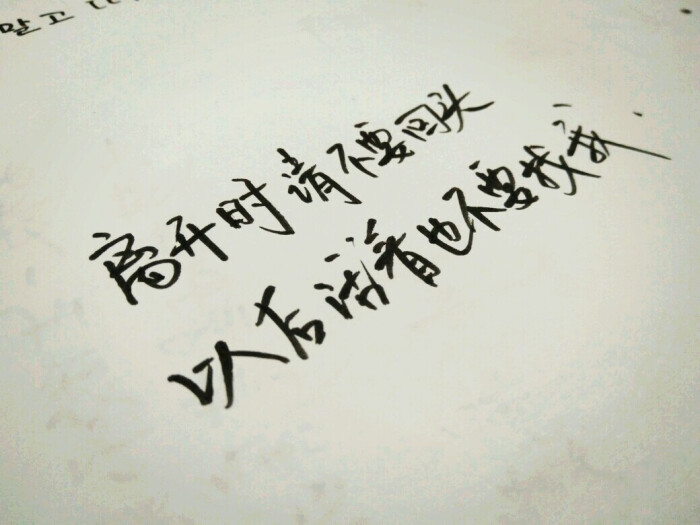 말고
离开时请不要回头
以后活着也不要找我